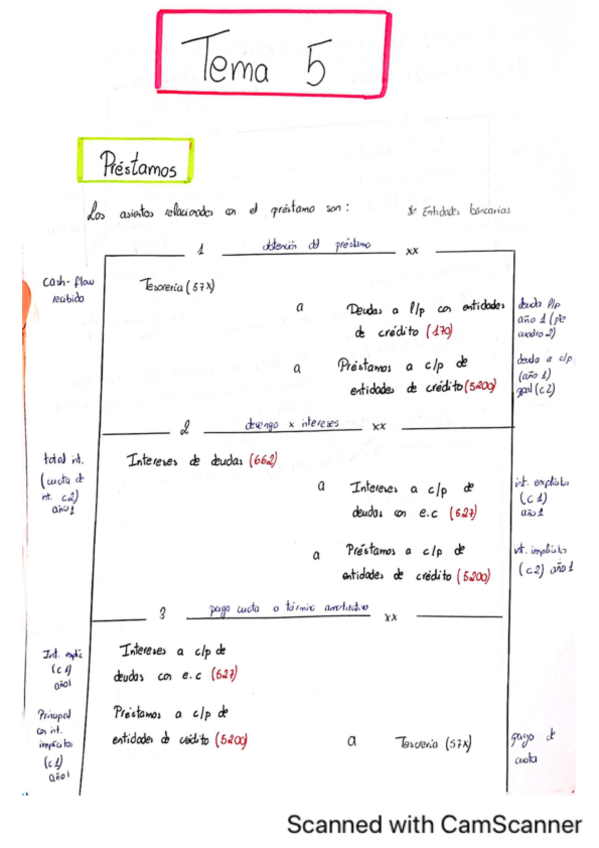 Tema 5
Préstamos
Los asientos relacionados con el préstamo son: * Entidades bancarias
1 obtención del préstamo xx
cash-flow
recibido
Tesorería (57X)
a Deudas a l/p con entidades
de crédito (170)
deuda l/p
año 1 (pte
cuadro 2)
a Préstamos a c/p de
entidades de crédito (5200)
deuda a c/p
(año 1)
(c2)
2 devengo x intereses xx
total int.
(cuota de
int. c2)
año 1
Intereses de deudas (662)
a Intereses a c/p de
deudas con e.c (527)
int. explícito
(c1)
año 1
a Préstamos a c/p de
entidades de crédito (5200)
int. implícito
(c2) año 1
3 pago cuota o término amortizativo xx
Int. explic
(c1)
año 1
Intereses a c/p de
deudas con e.c (527)
Principal
con int.
implícito
(c1)
año 1
Préstamos a c/p de
entidades de crédito (5200)
a Tesorería (57X)
pago de
cuota
Scanned with CamScanner